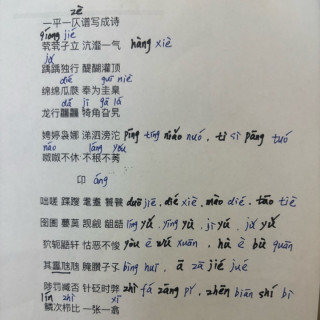 zè
一平一仄谱写成诗
qióng jié
茕茕孑立 沆瀣一气 hàng xiè
jǔ
踽踽独行 醍醐灌顶
dié guī niè
绵绵瓜瓞 奉为圭臬
dá jī gā lá
龙行龘龘 犄角旮旯
娉婷袅娜 涕泗滂沱 pīng tíng niǎo nuó, tì sì pāng tuó
náo láng yǒu
呶呶不休 不稂不莠
卬 áng
咄嗟 蹀躞 耄耋 饕餮 duō jiē, dié xiè, mào dié, tāo tiè
囹圄 蘡薁 觊觎 龃龉 líng yǔ, yīng yù, jì yú, jǔ yǔ
狖轭鼯轩 怙恶不悛 yòu è wú xuān, hù è bù quān
其靁虺虺 腌臢孑孓 ā zā jié jué
陟罚臧否 针砭时弊 zhì fá zāng pǐ, zhēn biān shí bì
lín zhì xī
鳞次栉比 一张一翕